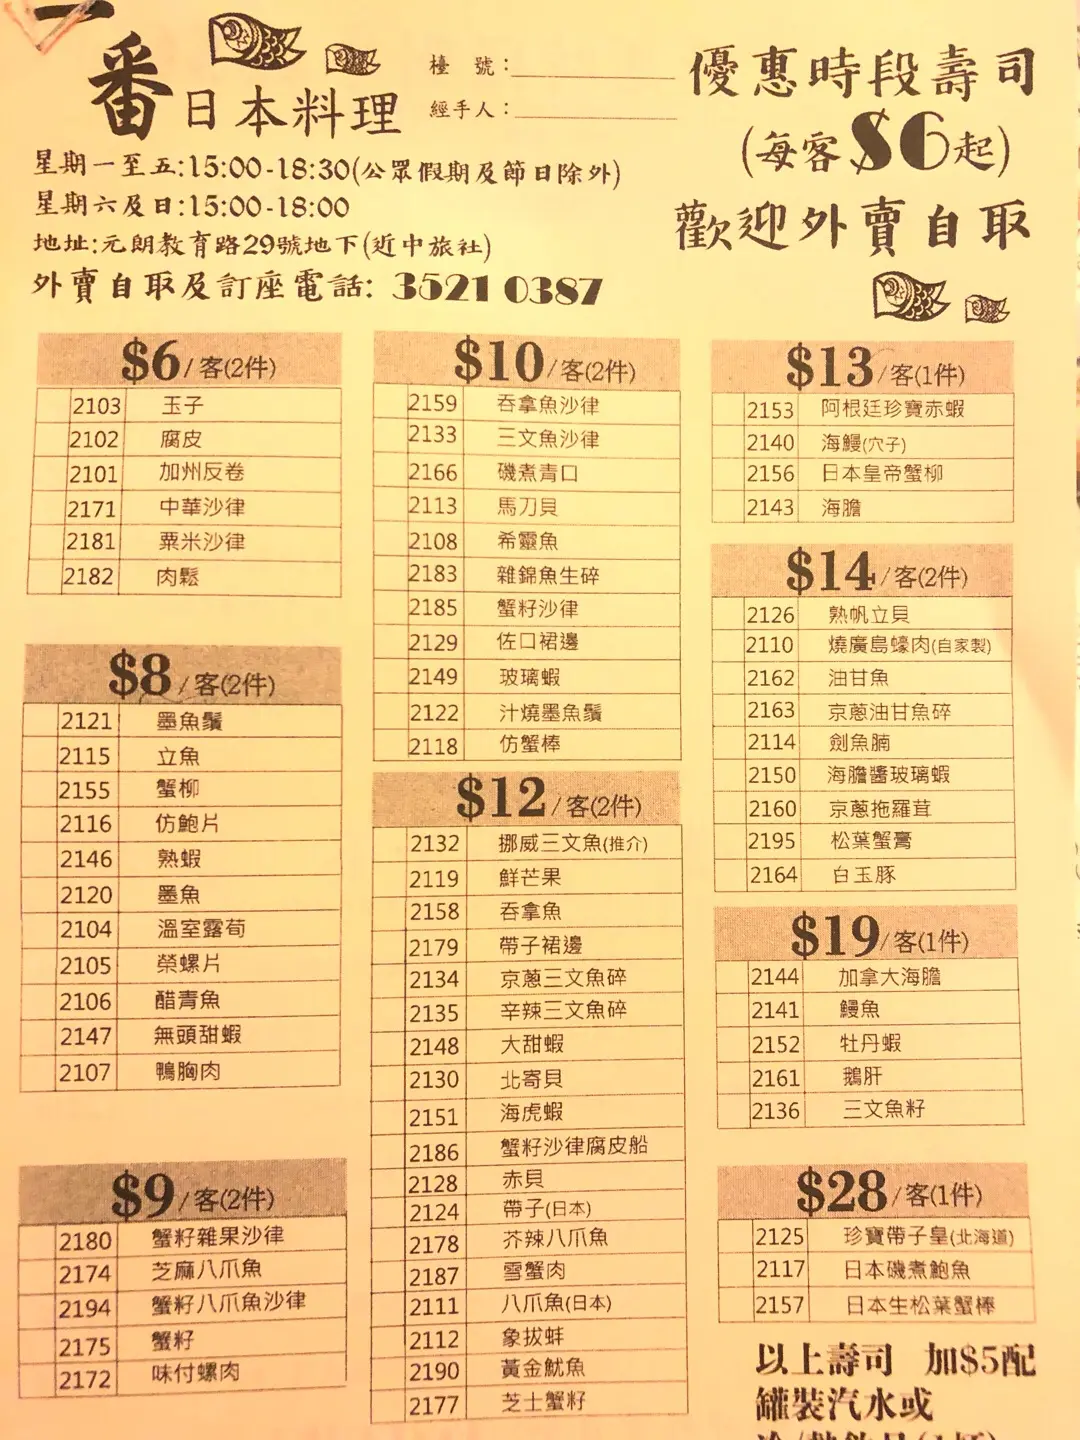 一番日本料理
檯 號：
經手人：
優惠時段壽司
(每客$6起)
歡迎外賣自取
星期一至五:15:00-18:30(公眾假期及節日除外)
星期六及日:15:00-18:00
地址:元朗教育路29號地下(近中旅社)
外賣自取及訂座電話: 3521 0387
$6/客(2件)
2103 玉子
2102 腐皮
2101 加州反卷
2171 中華沙律
2181 粟米沙律
2182 肉鬆
$8/客(2件)
2121 墨魚鬚
2115 立魚
2155 蟹柳
2116 仿鮑片
2146 熟蝦
2120 墨魚
2104 溫室露荀
2105 榮螺片
2106 醋青魚
2147 無頭甜蝦
2107 鴨胸肉
$9/客(2件)
2180 蟹籽雜果沙律
2174 芝麻八爪魚
2194 蟹籽八爪魚沙律
2175 蟹籽
2172 味付螺肉
$10/客(2件)
2159 吞拿魚沙律
2133 三文魚沙律
2166 磯煮青口
2113 馬刀貝
2108 希靈魚
2183 雜錦魚生碎
2185 蟹籽沙律
2129 佐口裙邊
2149 玻璃蝦
2122 汁燒墨魚鬚
2118 仿蟹棒
$12/客(2件)
2132 挪威三文魚(推介)
2119 鮮芒果
2158 吞拿魚
2179 帶子裙邊
2134 京蔥三文魚碎
2135 辛辣三文魚碎
2148 大甜蝦
2130 北寄貝
2151 海虎蝦
2186 蟹籽沙律腐皮船
2128 赤貝
2124 帶子(日本)
2178 芥辣八爪魚
2187 雪蟹肉
2111 八爪魚(日本)
2112 象拔蚌
2190 黃金魷魚
2177 芝士蟹籽
$13/客(1件)
2153 阿根廷珍寶赤蝦
2140 海鰻(穴子)
2156 日本皇帝蟹柳
2143 海膽
$14/客(2件)
2126 熟帆立貝
2110 燒廣島蠔肉(自家製)
2162 油甘魚
2163 京蔥油甘魚碎
2114 劍魚腩
2150 海膽醬玻璃蝦
2160 京蔥拖羅茸
2195 松葉蟹膏
2164 白玉豚
$19/客(1件)
2144 加拿大海膽
2141 鰻魚
2152 牡丹蝦
2161 鵝肝
2136 三文魚籽
$28/客(1件)
2125 珍寶帶子皇(北海道)
2117 日本磯煮鮑魚
2157 日本生松葉蟹棒
以上壽司 加$5配
罐裝汽水或